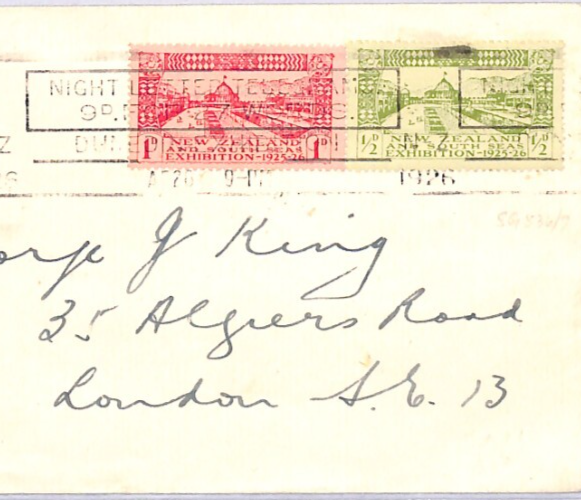 NIGHT LETTER TELEGRAMS
9P.M.
Z DUNE
S 1926
NEW ZEALAND
AND SOUTH SEAS
EXHIBITION-1925-26
1D 1D
NEW ZEALAND
AND SOUTH SEAS
EXHIBITION-1925-26
1/2D 1/2D
orge J King
35 Algiers Road
London S.E. 13